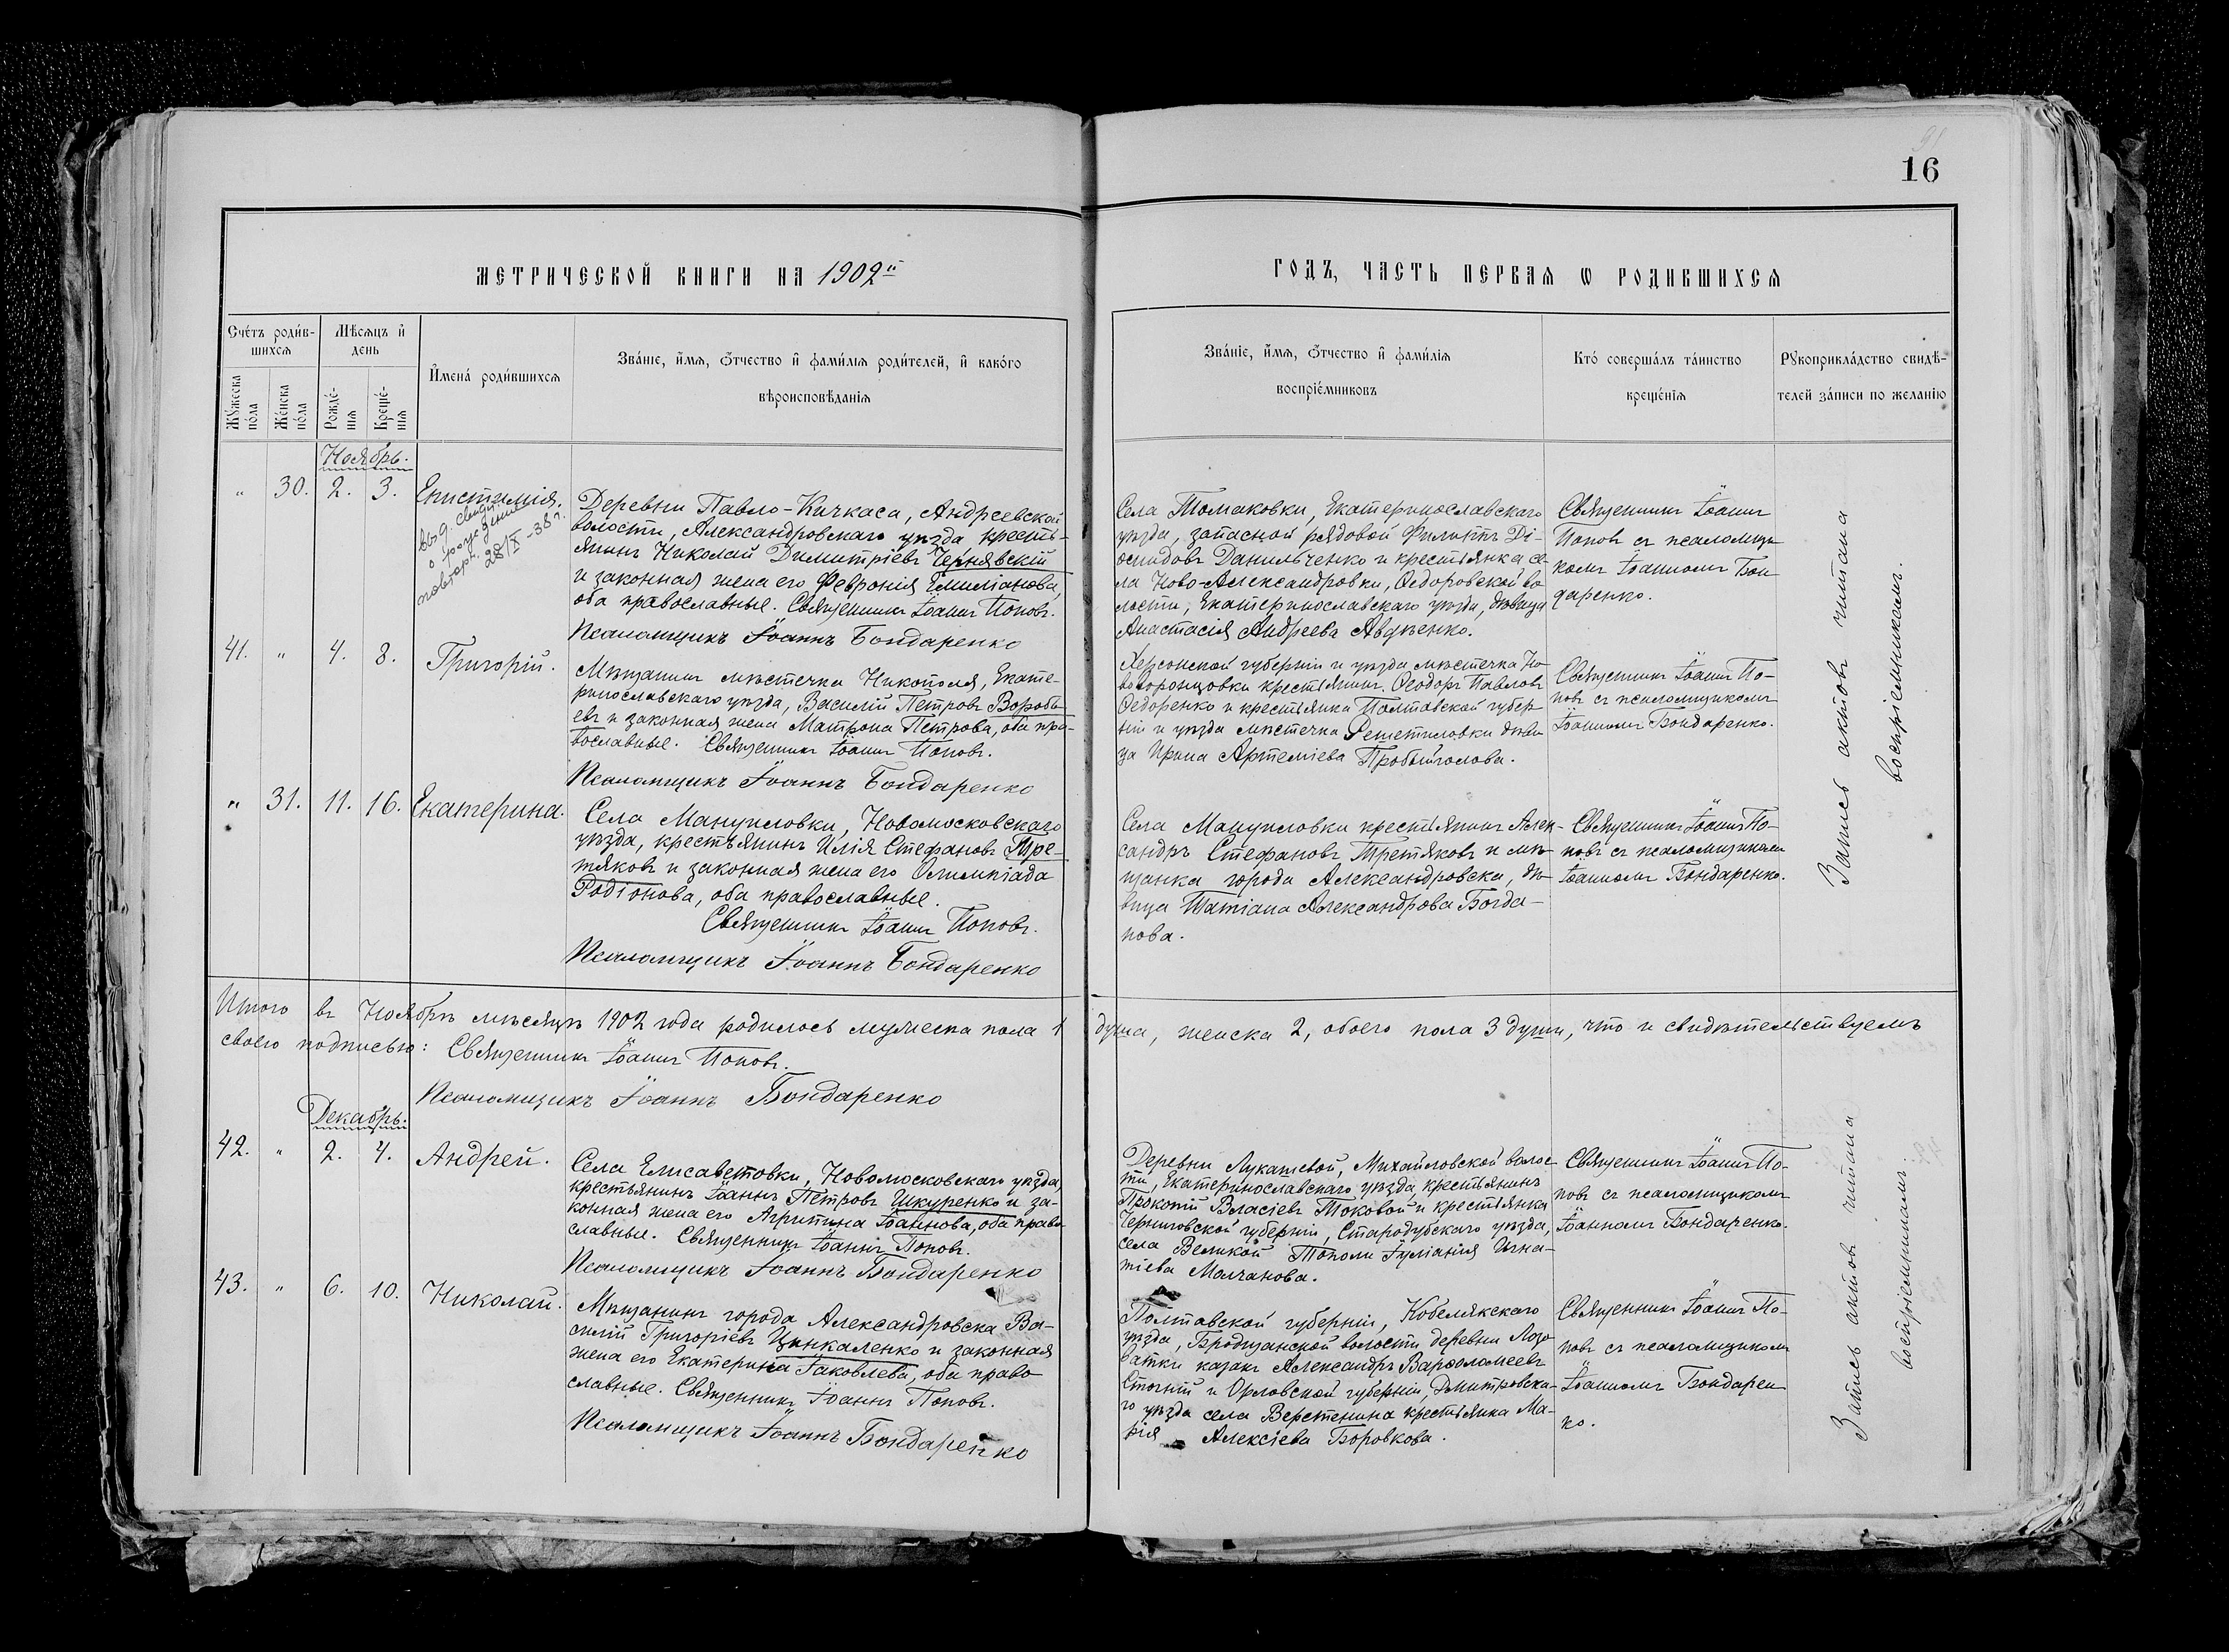 91
16
МЕТРИЧЕСКОЙ КНИГИ НА 1902й
ГОДЪ, ЧАСТЬ ПЕРВАЯ Ѡ РОДИВШИХСЯ
Сче́тъ роди́в-
шихсѧ
Мѣ́сѧцъ и҆
день
И҆мена́ роди́вшихсѧ
Зва́нїе, и҆́мѧ, ѻ҆́тчество и҆ фами́лїѧ роди́телей, и҆ како́го
вѣроисповѣ́данїѧ
Мꙋ́жеска
по́ла
Же́нска
по́ла
Рожде́-
нїѧ
Креще́-
нїѧ
Зва́нїе, и҆́мѧ, ѻ҆́тчество и҆ фами́лїѧ
воспрїе́мниковъ
Кто́ соверша́лъ та́инство
креще́нїѧ
Рꙋкоприкла́дство свидѣ́-
телей за́писи по жела́нїю
Ноябрь.
" 30. 2. 3. Епистимія.
выд. свид.
о рождении
повтор. 28/X-38 г.
Деревни Павло-Кичкаса, Андреевской
волости, Александровскаго уѣзда кресть-
янинъ Николай Димитріевъ Чернявскій
и законная жена его Феврония Емиліанова,
оба православные. Священникъ Іоаннъ Поповъ.
Псаломщикъ Іоаннъ Бондаренко
Села Томаковки, Екатеринославскаго
уѣзда, запасной рядовой Филиппъ Ді-
осидовъ Данильченко и крестьянка се-
ла Ново-Александровки, Ѳедоровской во
лости, Екатеринославскаго уѣзда, дѣвица
Анастасія Андреева Авдѣенко.
Священникъ Іоаннъ
Поповъ съ псаломщи
комъ Іоанномъ Бон
даренко.
41. " 4. 8. Григорій.
Мѣщанинъ мѣстечка Никополя, Екате-
ринославскаго уѣзда, Василій Петровъ Воробь
евъ и законная жена Матрона Петрова, оба пра-
вославные. Священникъ Іоаннъ Поповъ.
Псаломщикъ Іоаннъ Бондаренко
Херсонской губерніи и уѣзда мѣстечка Но-
воворонцовки крестьянинъ Ѳеодоръ Павловъ
Ѳедоренко и крестьянка Полтавской губер
ніи и уѣзда мѣстечка Решетиловки дѣви
ца Ирина Артеміева Пробийголова.
Священникъ Іоаннъ По-
повъ съ псаломщикомъ
Іоанномъ Бондаренко.
" 31. 11. 16. Екатерина.
Села Мануиловки, Новомосковскаго
уѣзда, крестьянинъ Илія Стефановъ Тре-
тяковъ и законная жена его Олимпіада
Родіонова, оба православные.
Священникъ Іоаннъ Поповъ.
Псаломщикъ Іоаннъ Бондаренко
Села Мануиловки крестьянинъ Алек-
сандръ Стефановъ Третяковъ и мѣ-
щанка города Александровска, дѣ-
вица Татіана Александрова Богда-
нова.
Священникъ Іоаннъ По-
повъ съ псаломщикомъ
Іоанномъ Бондаренко.
Запись актовъ читана
воспріемникамъ.
Итого въ Ноябрѣ мѣсяцѣ 1902 года родилось мужеска пола 1 душа, женска 2, обоего пола 3 души, что и свидѣтельствуемъ
своею подписью: Священникъ Іоаннъ Поповъ.
Псаломщикъ Іоаннъ Бондаренко
Декабрь.
42. " 2. 4. Андрей.
Села Елисаветовки, Новомосковскаго уѣзда
крестьянинъ Іоаннъ Петровъ Шкуренко и за-
конная жена его Агрипина Іоаннова, оба право
славные. Священникъ Іоаннъ Поповъ.
Псаломщикъ Іоаннъ Бондаренко
Деревни Лукашевой, Михайловской волос
ти, Екатеринославскаго уѣзда, крестьянинъ
Прокопій Власіевъ Токовой и крестьянка
Черниговской губерніи, Стародубскаго уѣзда,
села Великой Тополи Іуліанія Игна-
тіева Молчанова.
Священникъ Іоаннъ По-
повъ съ псаломщикомъ
Іоанномъ Бондаренко.
43. " 6. 10. Николай.
Мѣщанинъ города Александровска Ва-
силій Григоріевъ Цинкаленко и законная
жена его Екатерина Іаковлева, оба право
славные. Священникъ Іоаннъ Поповъ.
Псаломщикъ Іоаннъ Бондаренко
Полтавской губерніи, Кобелякскаго
уѣзда, Бродщанской волости, деревни Лозо
ватки казакъ Александръ Варѳоломеевъ
Стогній и Орловской губерніи, Дмитровска-
го уѣзда села Верстенина крестьянка Ма-
рія Алексіева Боровкова.
Священникъ Іоаннъ По-
повъ съ псаломщикомъ
Іоанномъ Бондарен
ко.
Запись актовъ читана
воспріемникамъ.